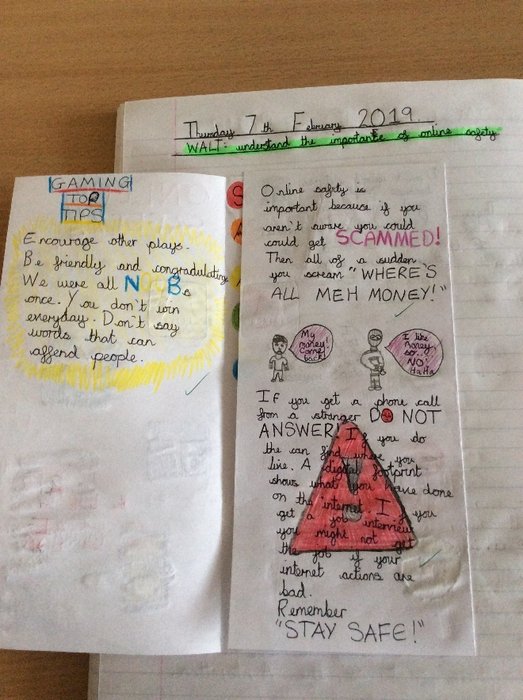 Thursday 7th February 2019
WALT: understand the importance of online safety
GAMING
TOP
TIPS
Encourage other plays.
Be friendly and congradulating
We were all NOOBs
once. You don't win
everyday. Don't say
words that can
affend people.
Online safity is
important because if you
aren't aware you could
could get SCAMMED!
Then all of a sudden
you scream "WHERE'S
ALL MEH MONEY!"
My
money!
Come
back
I like
money
so..
NO!
HaHa
If you get a phone call
from a stranger DO NOT
ANSWER! If you do
the can find where you
live. A digital footprint
shows what you have done
on the internet. If you
get a job interview
you might not get
the job if your
internet actions are
bad.
Remember
"STAY SAFE!"